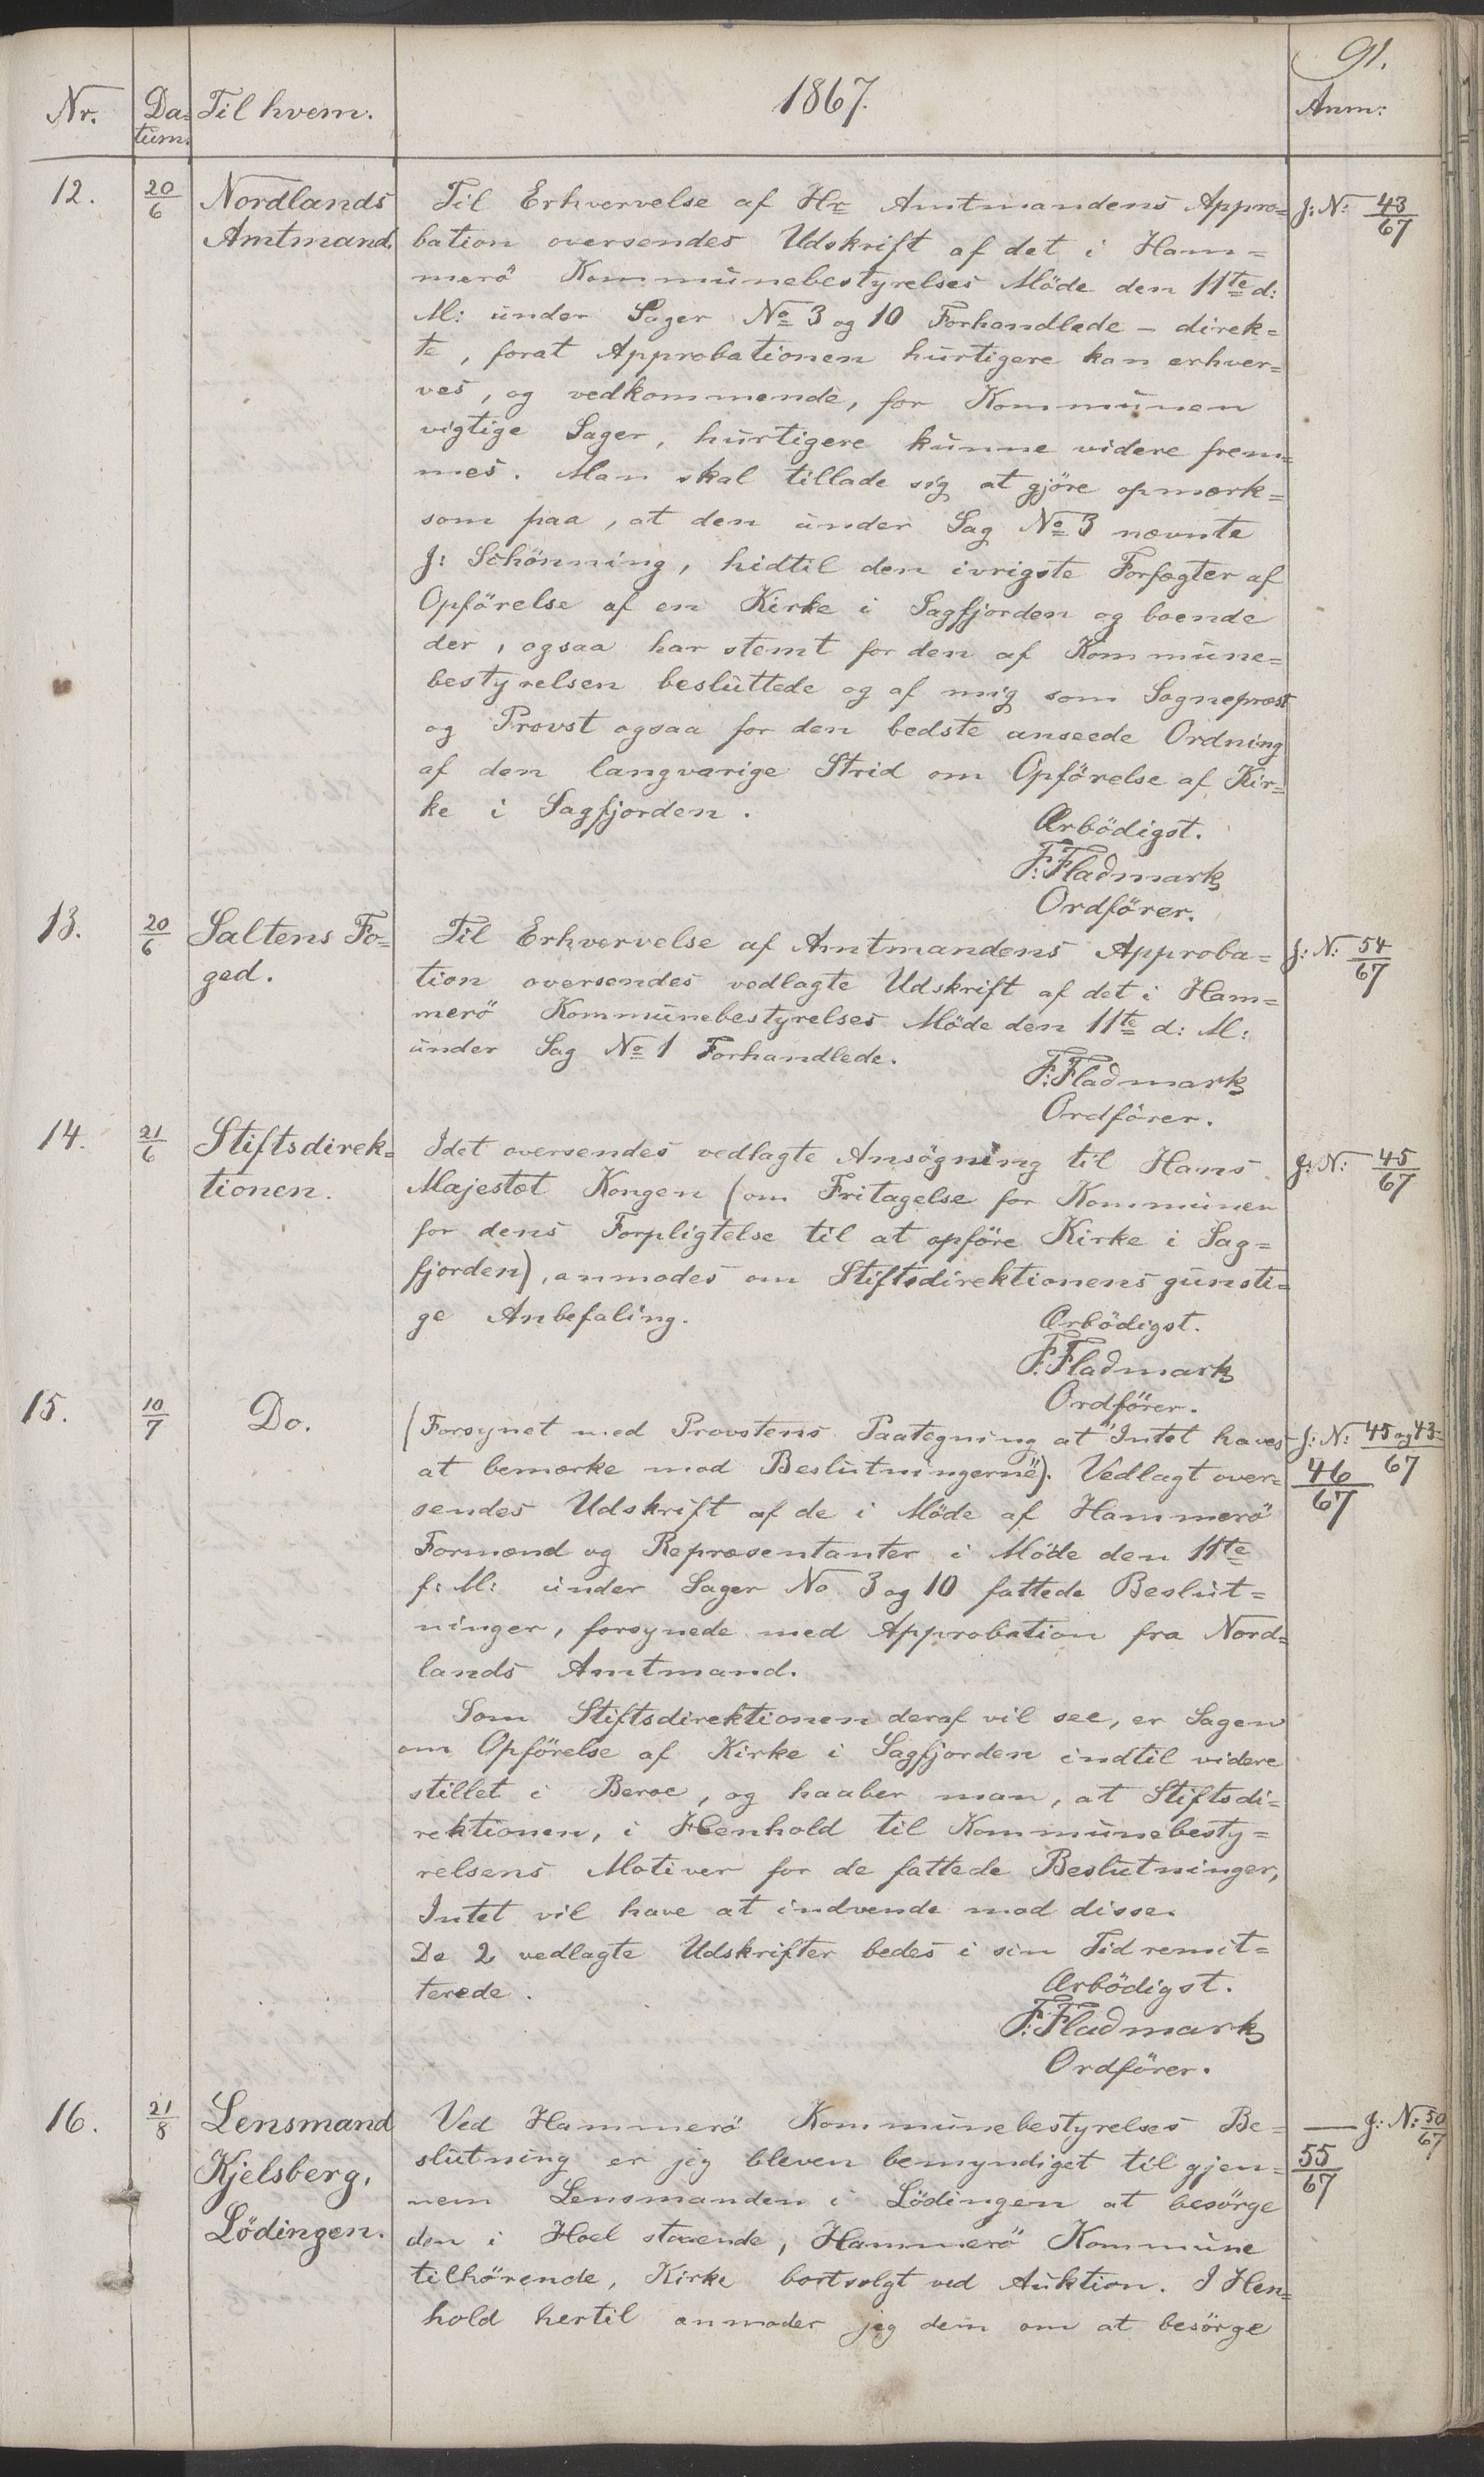 91.
Nr. Da- Til hvem. 1867. Anm:
tum.
12. 20/6 Nordlands Til Erhvervelse af Hr Amtmandens Appro= J: N: 43/67
Amtmand. bation oversendes Udskrift af det i Ham=
merö Kommunebestyrelses Möde den 11te d:
M: under Sager No 3 og 10 Forhandlede - direk=
te, forat Approbationen hurtigere kan erhver=
ves, og vedkommende, for Kommunen
vigtige Sager, hurtigere kunne videre frem=
mes. Man skal tillade sig at gjöre opmærk=
som paa, at den under Sag No 3 nævnte
J: Schönning, hidtil den ivrigste Forfægter af
Opförelse af en Kirke i Sagfjorden og boende
der, ogsaa har stemt for den af Kommune=
bestyrelsen besluttede og af mig som Sognepræst
og Provst ogsaa for den bedste anseede Ordning
af den langvarige Strid om Opförelse af Kir=
ke i Sagfjorden.
Ærbödigst.
F: Fladmark
Ordförer.
13. 20/6 Saltens Fo= Til Erhvervelse af Amtmandens Approba= J: N: 54/67
ged. tion oversendes vedlagte Udskrift af det i Ham=
merö Kommunebestyrelses Möde den 11te d: M:
under Sag No 1 Forhandlede.
F: Fladmark
Ordförer.
14. 21/6 Stiftsdirek= Idet oversendes vedlagte Ansögning til Hans J: N: 45/67
tionen. Majestæt Kongen (om Fritagelse for Kommunen
for dens Forpligtelse til at opföre Kirke i Sag=
fjorden), anmodes om Stiftsdirektionens gunsti=
ge Anbefaling.
Ærbödigst.
F: Fladmark
Ordförer.
15. 10/7 Do. (Forsynet med Provstens Paategning at "Intet haves J: N: 45 og 43/67
at bemærke mod Beslutningerne"). Vedlagt over= 46/67
sendes Udskrift af de i Möde af Hammerö
Formænd og Repræsentanter i Möde den 11te
f: M: under Sager No 3 og 10 fattede Beslut=
ninger, forsynede med Approbation fra Nord=
lands Amtmand.
Som Stiftsdirektionen deraf vil see, er Sagen
om Opförelse af Kirke i Sagfjorden indtil videre
stillet i Beroe, og haaber man, at Stiftsdi=
rektionen, i Henhold til Kommunebesty=
relsens Motiver for de fattede Beslutninger,
Intet vil have at indvende mod disse.
De 2 vedlagte Udskrifter bedes i sin Tid remit=
terede.
Ærbödigst.
F: Fladmark
Ordförer.
16. 21/8 Lensmand Ved Hammerö Kommunebestyrelses Be= J: N: 50/67
Kjelsberg, slutning er jeg bleven bemyndiget til gjen= 55/67
nem Lensmanden i Lödingen at besörge
Lödingen. den i Hoel staaende, Hammerö Kommune
tilhörende, Kirke bortsolgt ved Auktion. I Hen=
hold hertil anmoder jeg dem om at besörge